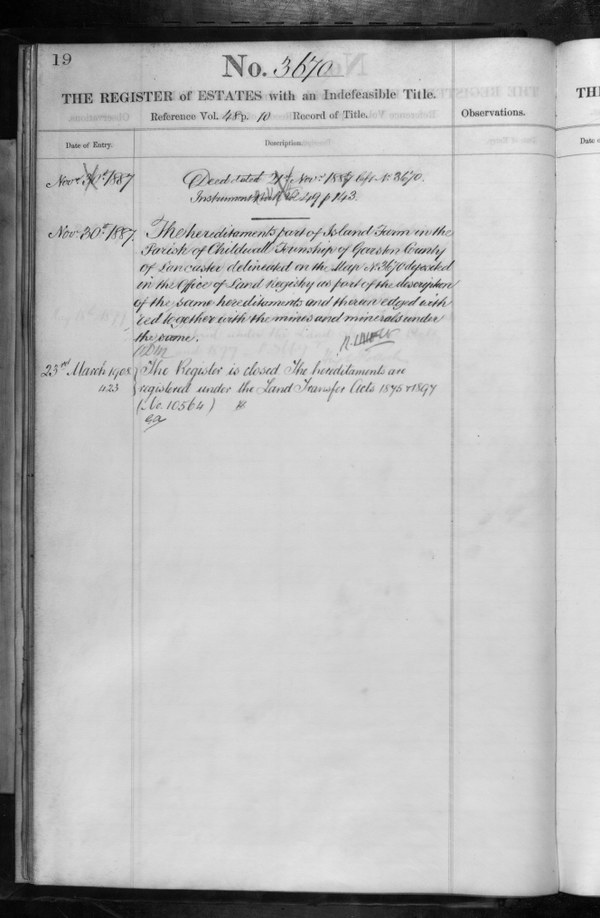 19
No. 3670
THE REGISTER of ESTATES with an Indefeasible Title.
Reference Vol. 48 p. 10 Record of Title.
Observations.
Date of Entry.
Description.
Novr 30th 1887
Deed dated Novr 1887 Off. No. 3670.
Instrument 49 p 143.
Novr 30th 1887.
The hereditaments part of Island Farm in the
Parish of Childwall Township of Garston County
of Lancaster delineated on the Map No. 3670 deposited
in the Office of Land Registry as part of the description
of the same hereditaments and therein edged with
red together with the mines and minerals under
the same.
23rd March 1908
The Register is closed The hereditaments are
423
registered under the Land Transfer Acts 1875 & 1897
(No. 10564)
TH
Date o